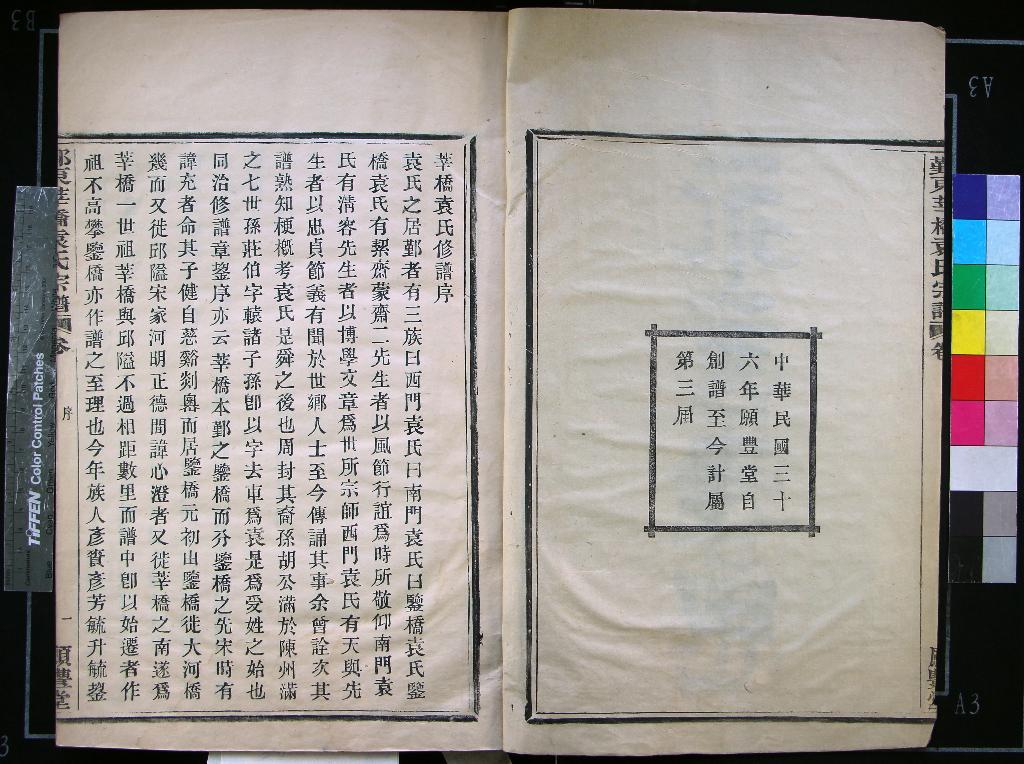 中華民國三十
六年願豐堂自
創譜至今計屬
第三屆
莘橋袁氏修譜序
袁氏之居鄞者有三族曰西門袁氏曰南門袁氏曰鑒橋袁氏鑒
橋袁氏有絜齋蒙齋二先生者以風節行誼爲時所敬仰南門袁
氏有淸容先生者以博學文章爲世所宗師西門袁氏有天與先
生者以忠貞節義有聞於世鄉人士至今傳誦其事余曾詮次其
譜熟知梗槪考袁氏是舜之後也周封其裔孫胡公滿於陳州滿
之七世孫莊伯字轅諸子孫卽以字去車爲袁是爲受姓之始也
同治修譜章鋆序亦云莘橋本鄞之鑒橋而分鑒橋之先宋時有
諱充者命其子健自慈谿剡嶴而居鑒橋元初由鑒橋徙大河橋
幾而又徙邱隘宋家河明正德間諱心澄者又徙莘橋之南遂爲
莘橋一世祖莘橋與邱隘不過相距數里而譜中卽以始遷者作
祖不高攀鑒橋亦作譜之至理也今年族人彥賚彥芳毓升毓鋆
序
一
願豐堂
TIFFEN Color Control Patches
A3
A3
B3